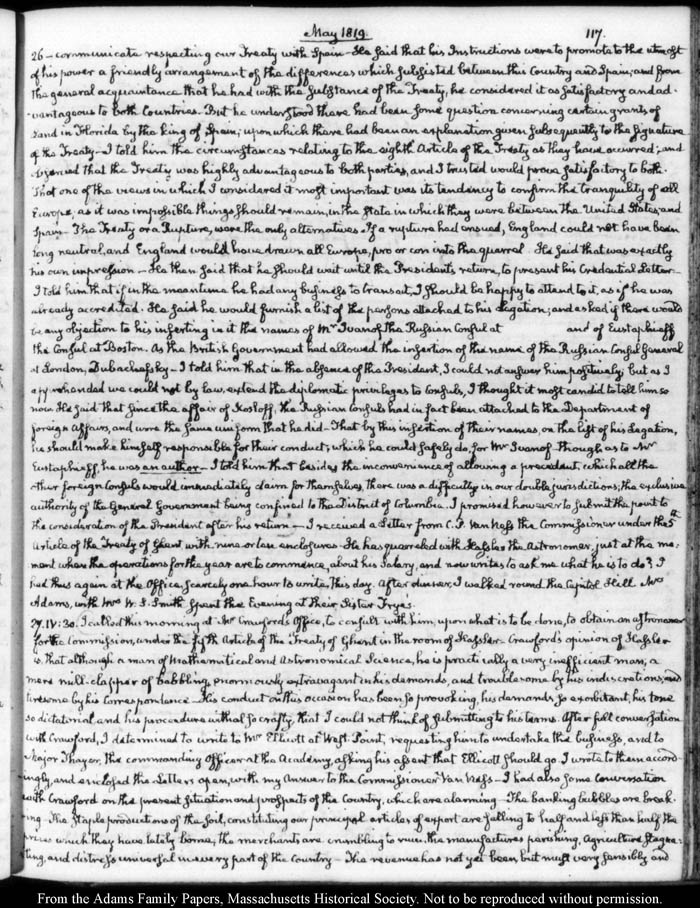 May 1819. 117.
26 – communicate respecting our Treaty with Spain – He said that his Instructions were to promote to the utmost
of his power a friendly arrangement of the differences which subsisted between this Country and Spain; and from
the general acquaintance that he had with the substance of the Treaty, he considered it as satisfactory and ad-
vantageous to both Countries. But he understood there had been some question concerning certain grants of
Land in Florida by the King of Spain; upon which there had been an explanation given subsequently to the signature
of the Treaty – I told him the circumstances relating to the eighth Article of the Treaty as they have occurred; and
that the Treaty was highly advantageous to both parties, and I trusted would prove satisfactory to both.
That one of the views in which I considered it most important was its tendency to confirm the tranquility of all
Europe, as it was impossible things should remain, in the state in which they were between the United States and
Spain – The Treaty or a Rupture, were the only alternatives – If a rupture had ensued, England could not have been
long neutral, and England would have drawn all Europe, pro or con into the quarrel. He said that was exactly
his own impression – He then said that he should wait until the President's return, to present his Credential Letter –
I told him that if in the meantime he had any business to transact, I should be happy to attend to it, as if he was
already accredited. He said he would furnish a list of the persons attached to his Legation; and asked if there would
be any objection to his inserting in it the names of Mr Ivanof the Russian Consul at and of Eustaphieff
the Consul at Boston. As the British Government had allowed the insertion of the name of the Russian Consul General
at London, Dubachefsky – I told him that in the absence of the President, I could not answer him positively; but as I
apprehended we could not by law, extend the diplomatic privileges to Consuls, I thought it most candid to tell him so
now. He said that since the affair of Kosloff, the Russian Consuls had in fact been attached to the Department of
foreign affairs, and wore the same uniform that he did – That by this insertion of their names, on the list of his Legation,
he should make himself responsible for their conduct; which he could safely do, for Mr Ivanof – though as to Mr
Eustaphieff, he was an author – I told him that besides the inconvenience of allowing a precedent, which all the
other foreign Consuls would immediately claim for themselves, there was a difficulty in our double jurisdictions; the exclusive
authority of the General Government being confined to the District of Columbia. I promised however to submit the point to
the consideration of the President after his return – I received a Letter from C. P. Van Ness the Commissioner under the 5th
Article of the Treaty of Ghent with nine or ten enclosures – He has quarreled with Hassler the Astronomer just at the mo-
ment when the operations for the year are to commence, about his Salary, and now writes to ask me what he is to do? I
had thus again at the Office, scarcely one hour to write, this day. After dinner, I walked round the Capitol Hill. Mrs
Adams, with Mrs W. S. Smith spent the Evening at their Sister Frye's.
27. IV: 30. I called this morning at Mr Crawford's Office, to consult with him, upon what is to be done, to obtain an astronomer
for the Commission, under the fifth Article of the Treaty of Ghent in the room of Hassler – Crawford's opinion of Hassler
is that although a man of Mathematical and Astronomical Science, he is practically a very inefficient man, a
mere mill-clapper of babbling, enormously extravagant in his demands, and troublesome by his indiscretions, and
tiresome by his Correspondence – His conduct on this occasion has been so provoking, his demands so exorbitant, his tone
so dictatorial, and his procedure withal so crafty, that I could not think of submitting to his terms. After full conversation
with Crawford, I determined to write to Mr Ellicott at West Point, requesting him to undertake the business, and to
Major Thayer, the commanding Officer at the Academy, asking his assent that Ellicott should go. I wrote to them accord-
ingly, and enclosed the Letters open, with my Answer to the Commissioner Van Ness – I had also some Conversation
with Crawford on the present situation and prospects of the Country, which are alarming – The banking bubbles are break-
ing – The staple productions of the soil, constituting our principal articles of export are falling to half and less than half the
prices which they have lately borne, the merchants are crumbling to ruin, the manufactures perishing, agriculture stagna-
ting, and distress universal in every part of the Country – The revenue has not yet been, but must very sensibly and
From the Adams Family Papers, Massachusetts Historical Society. Not to be reproduced without permission.